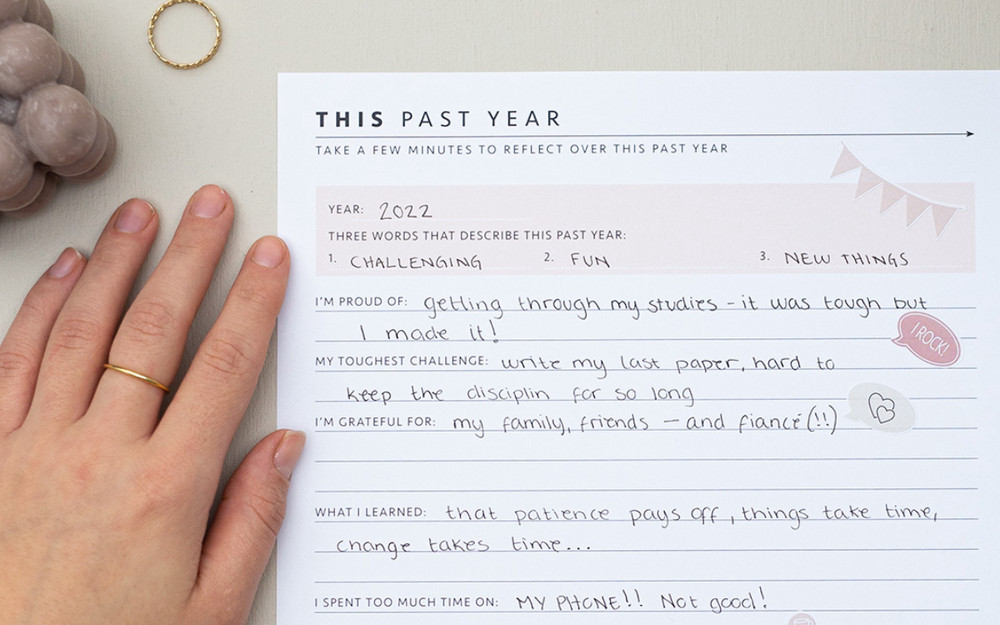 THIS PAST YEAR
TAKE A FEW MINUTES TO REFLECT OVER THIS PAST YEAR
YEAR: 2022
THREE WORDS THAT DESCRIBE THIS PAST YEAR:
1. CHALLENGING 2. FUN 3. NEW THINGS
I'M PROUD OF: getting through my studies - it was tough but
I made it!
I ROCK!
MY TOUGHEST CHALLENGE: write my last paper, hard to
keep the disciplin for so long
I'M GRATEFUL FOR: my family, friends - and fiancé (!!)
WHAT I LEARNED: that patience pays off, things take time,
change takes time...
I SPENT TOO MUCH TIME ON: MY PHONE!! Not good!